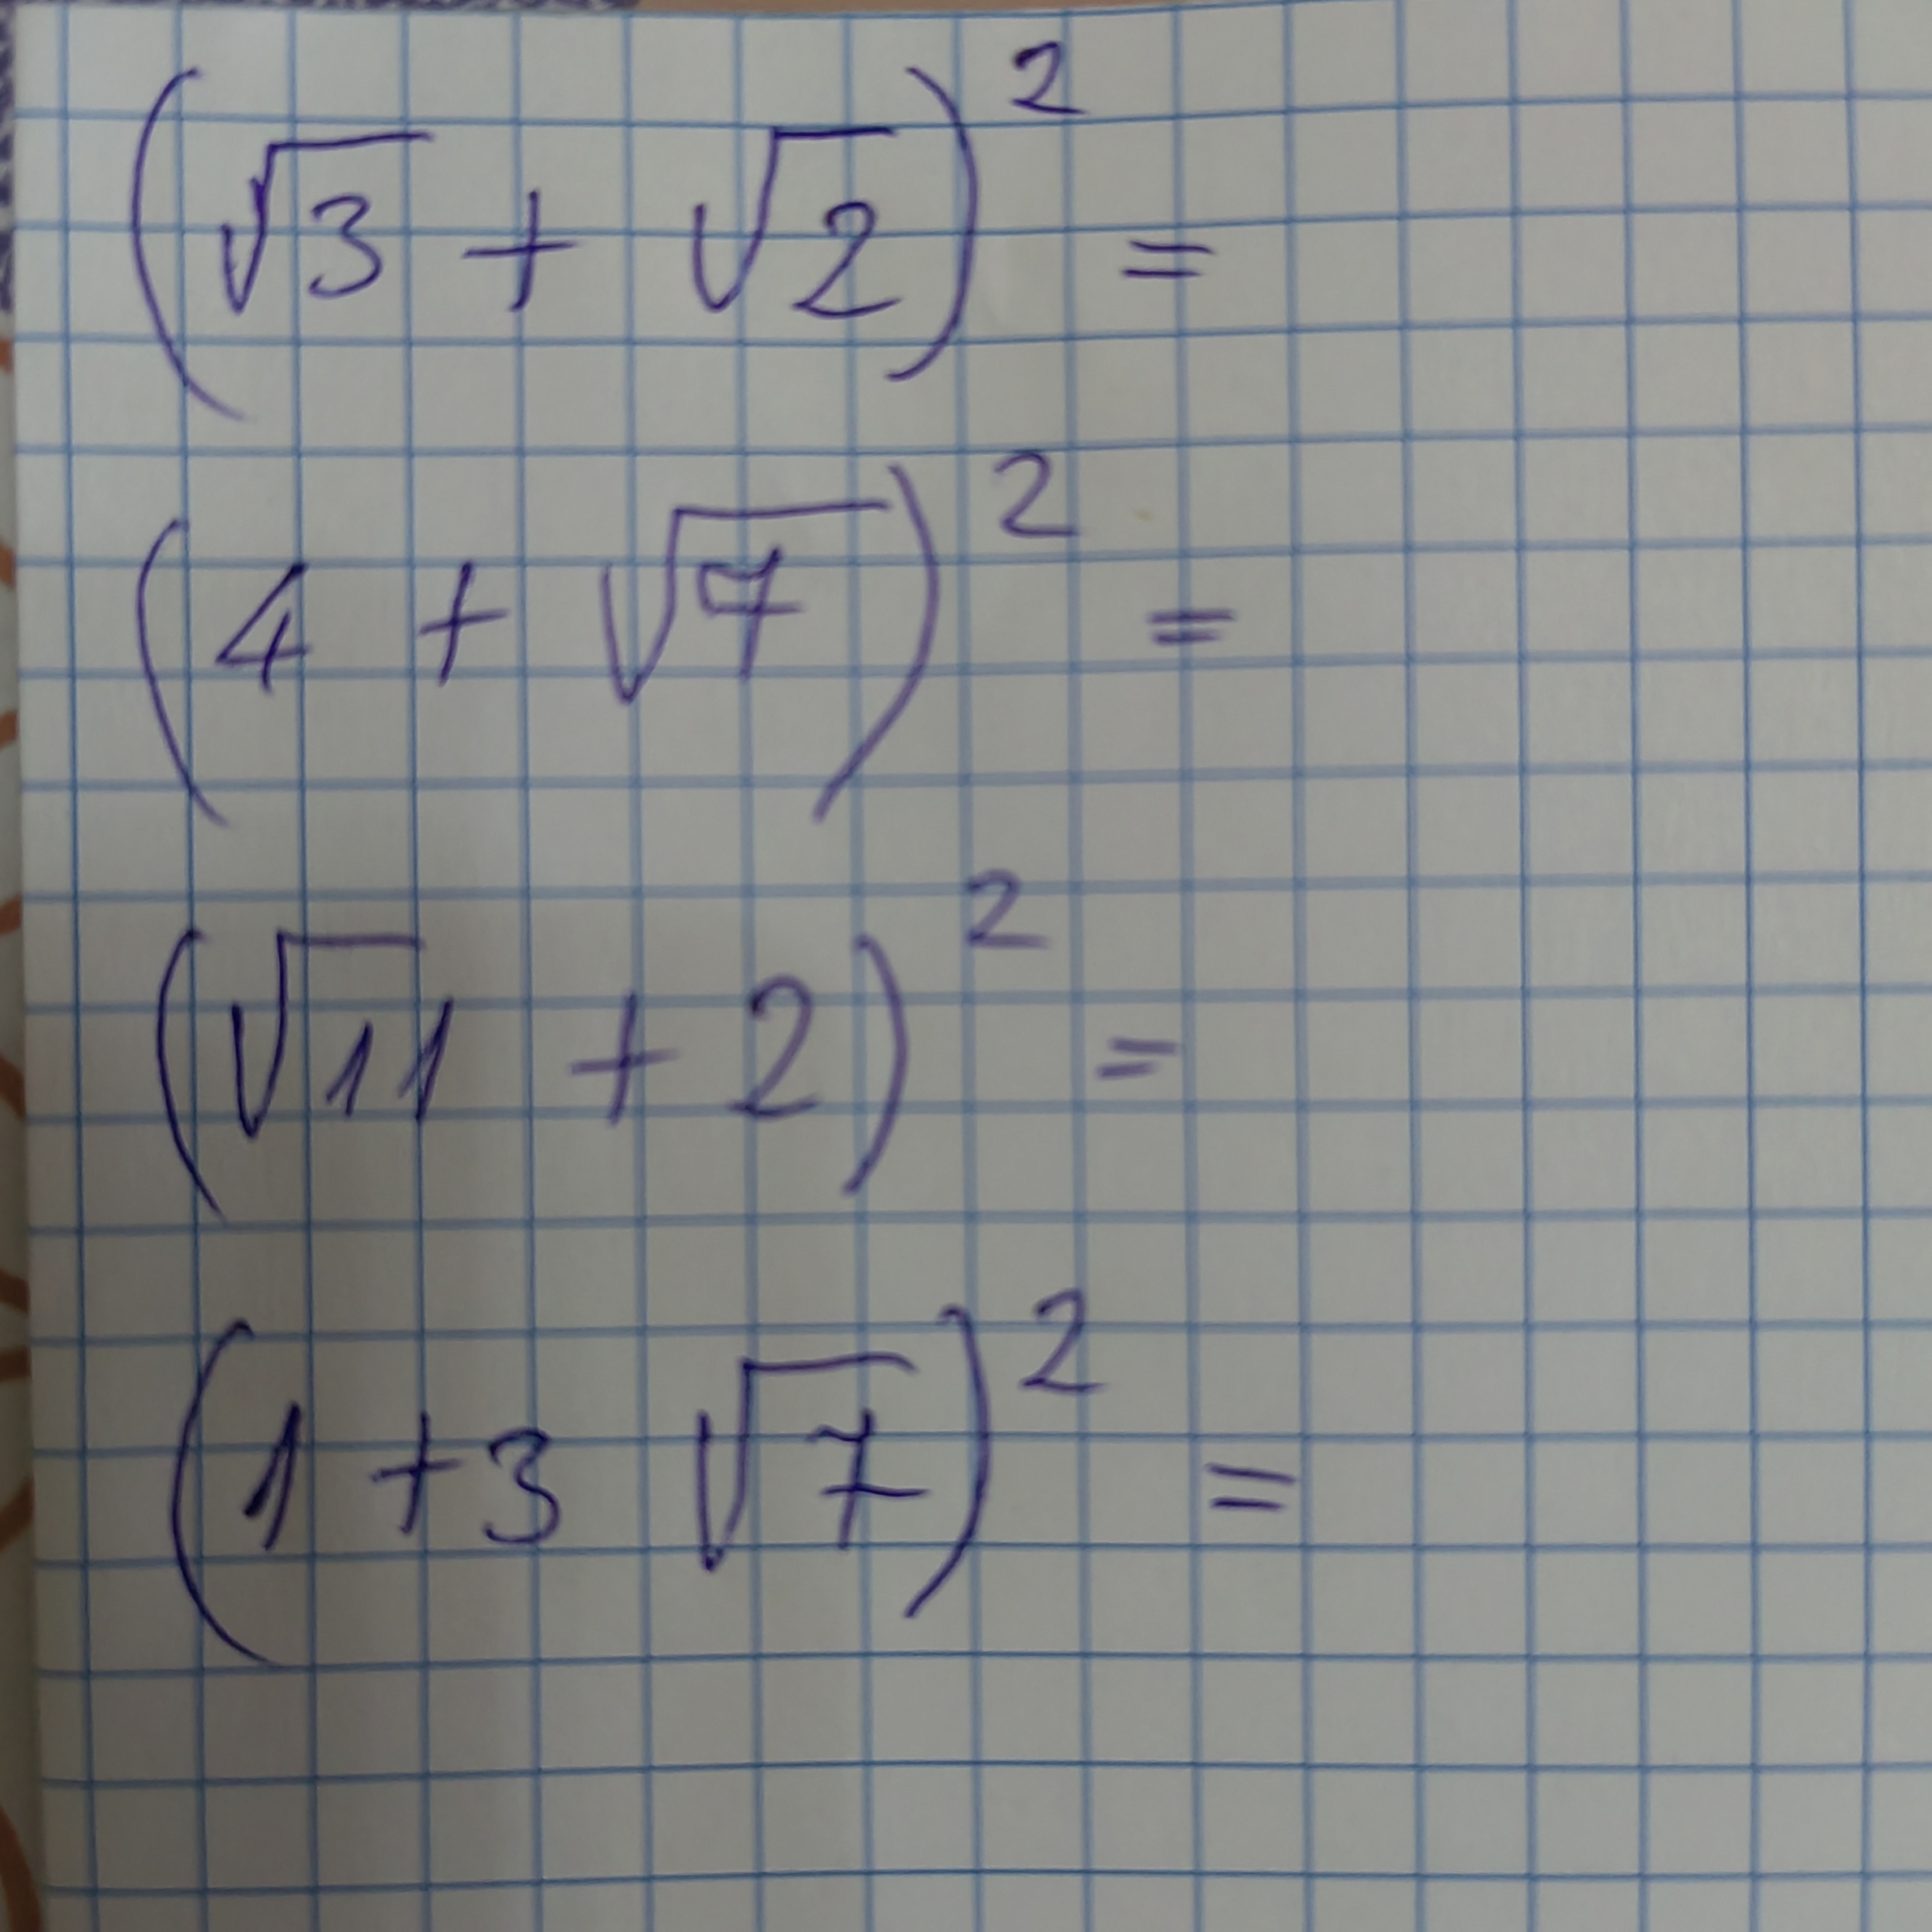 (√3 + √2)² =
(4 + √7)² =
(√11 + 2)² =
(1 + 3 √7)² =